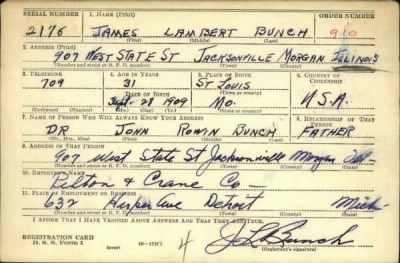 SERIAL NUMBER 1. NAME (Print) ORDER NUMBER
2176 JAMES LAMBERT BUNCH 910
(First) (Middle) (Last)
2. ADDRESS (Print)
907 WEST STATE ST JACKSONVILLE MORGAN ILLINOIS
(Number and street or R. F. D. number) (Town) (County) (State)
3. TELEPHONE 4. AGE IN YEARS 5. PLACE OF BIRTH 6. COUNTRY OF CITIZENSHIP
709 31 ST LOUIS
(Town or county)
DATE OF BIRTH
Sept. 28 1909 MO. U.S.A.
(Exchange) (Number) (Mo.) (Day) (Yr.) (State or country)
7. NAME OF PERSON WHO WILL ALWAYS KNOW YOUR ADDRESS 8. RELATIONSHIP OF THAT PERSON
DR JOHN BUNCH FATHER
(Mr., Mrs., Miss) (First) (Middle) (Last)
9. ADDRESS OF THAT PERSON
907 West State St Jacksonville Morgan Ill-
(Number and street or R. F. D. number) (Town) (County) (State)
10. EMPLOYER'S NAME
Pelton & Crane Co-
11. PLACE OF EMPLOYMENT OR BUSINESS
632 Harper Ave Detroit Mich-
(Number and street or R. F. D. number) (Town) (County) (State)
I AFFIRM THAT I HAVE VERIFIED ABOVE ANSWERS AND THAT THEY ARE TRUE.
REGISTRATION CARD
D. S. S. Form 1 (over) 4 J L Bunch
(Registrant's signature)